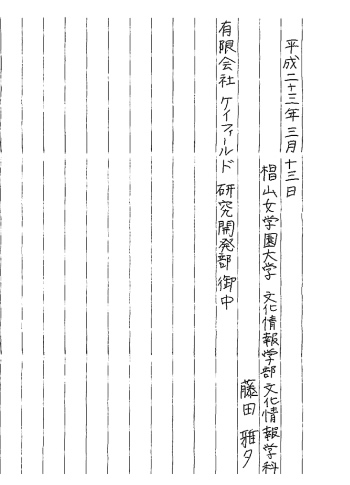 平成二十三年三月十三日
椙山女学園大学 文化情報学部文化情報学科
藤田 雅夕
有限会社 ケイフィールド 研究開発部 御中